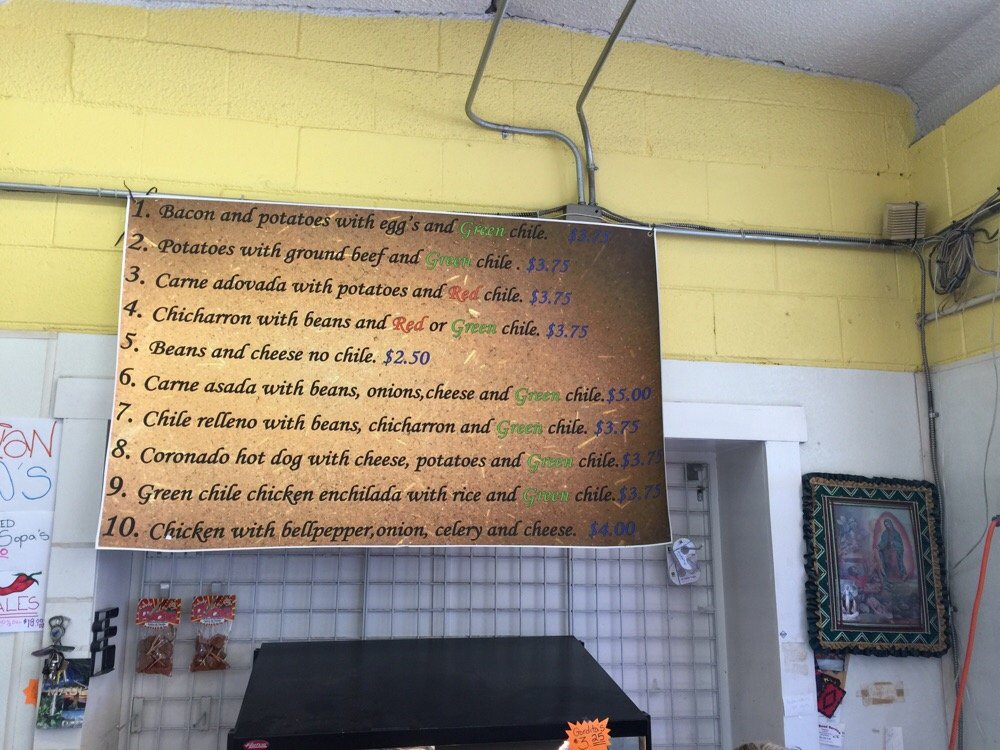 1. Bacon and potatoes with egg's and Green chile. $3.75
2. Potatoes with ground beef and Green chile . $3.75
3. Carne adovada with potatoes and Red chile. $3.75
4. Chicharron with beans and Red or Green chile. $3.75
5. Beans and cheese no chile. $2.50
6. Carne asada with beans, onions,cheese and Green chile.$5.00
7. Chile relleno with beans, chicharron and Green chile. $3.75
8. Coronado hot dog with cheese, potatoes and Green chile.$3.75
9. Green chile chicken enchilada with rice and Green chile.$3.75
10. Chicken with bellpepper,onion, celery and cheese. $4.00
Sopa's
Gordita's
$3.25